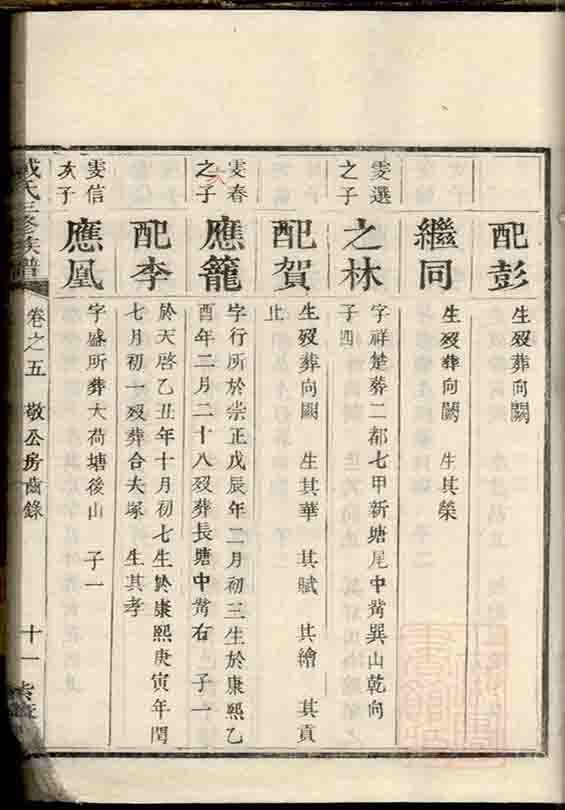 配彭
生歿葬向闕
繼同
生歿葬向闕 生其榮
雯選
之子
之林
字祥楚葬二都七甲新塘尾中觜巽山乾向
子四
配賀
生歿葬向闕 生其華 其賦 其繪 其貢
止
雯春
之子
應籠
字行所於崇正戊辰年二月初三生於康熙乙
酉年二月二十八歿葬長塘中觜右 子一
配李
於天啓乙丑年十月初七生於康熙庚寅年閏
七月初一歿葬合夫塚 生其孝
雯信
次子
應凰
字盛所葬大荷塘後山 子一
氏三修族譜
卷之五 敬公房齒錄
十一